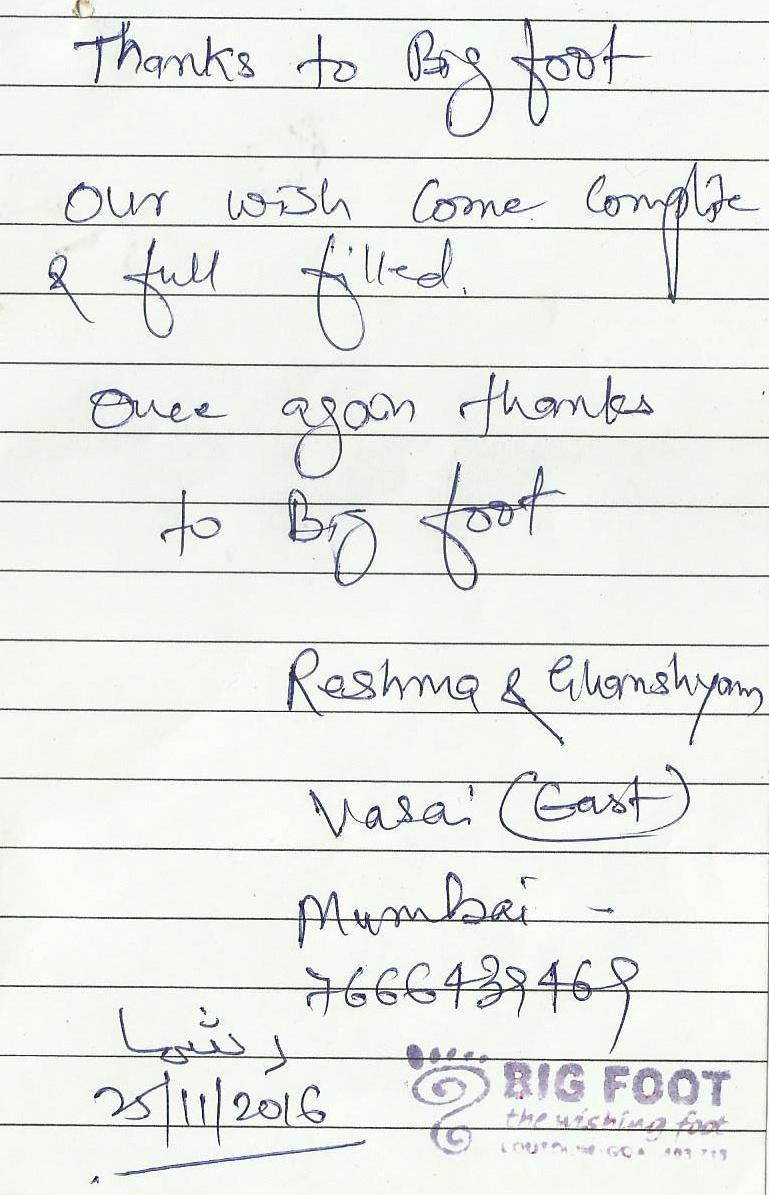 Thanks to Big foot
Our wish Come Complite
& full filled.
Once again thanks
to Big foot
Reshma & Ghanshyam
Vasai (East)
Mumbai -
7666439469
رشما
25/11/2016
BIG FOOT
the wishing foot
LOUTOLIM GOA 403 718